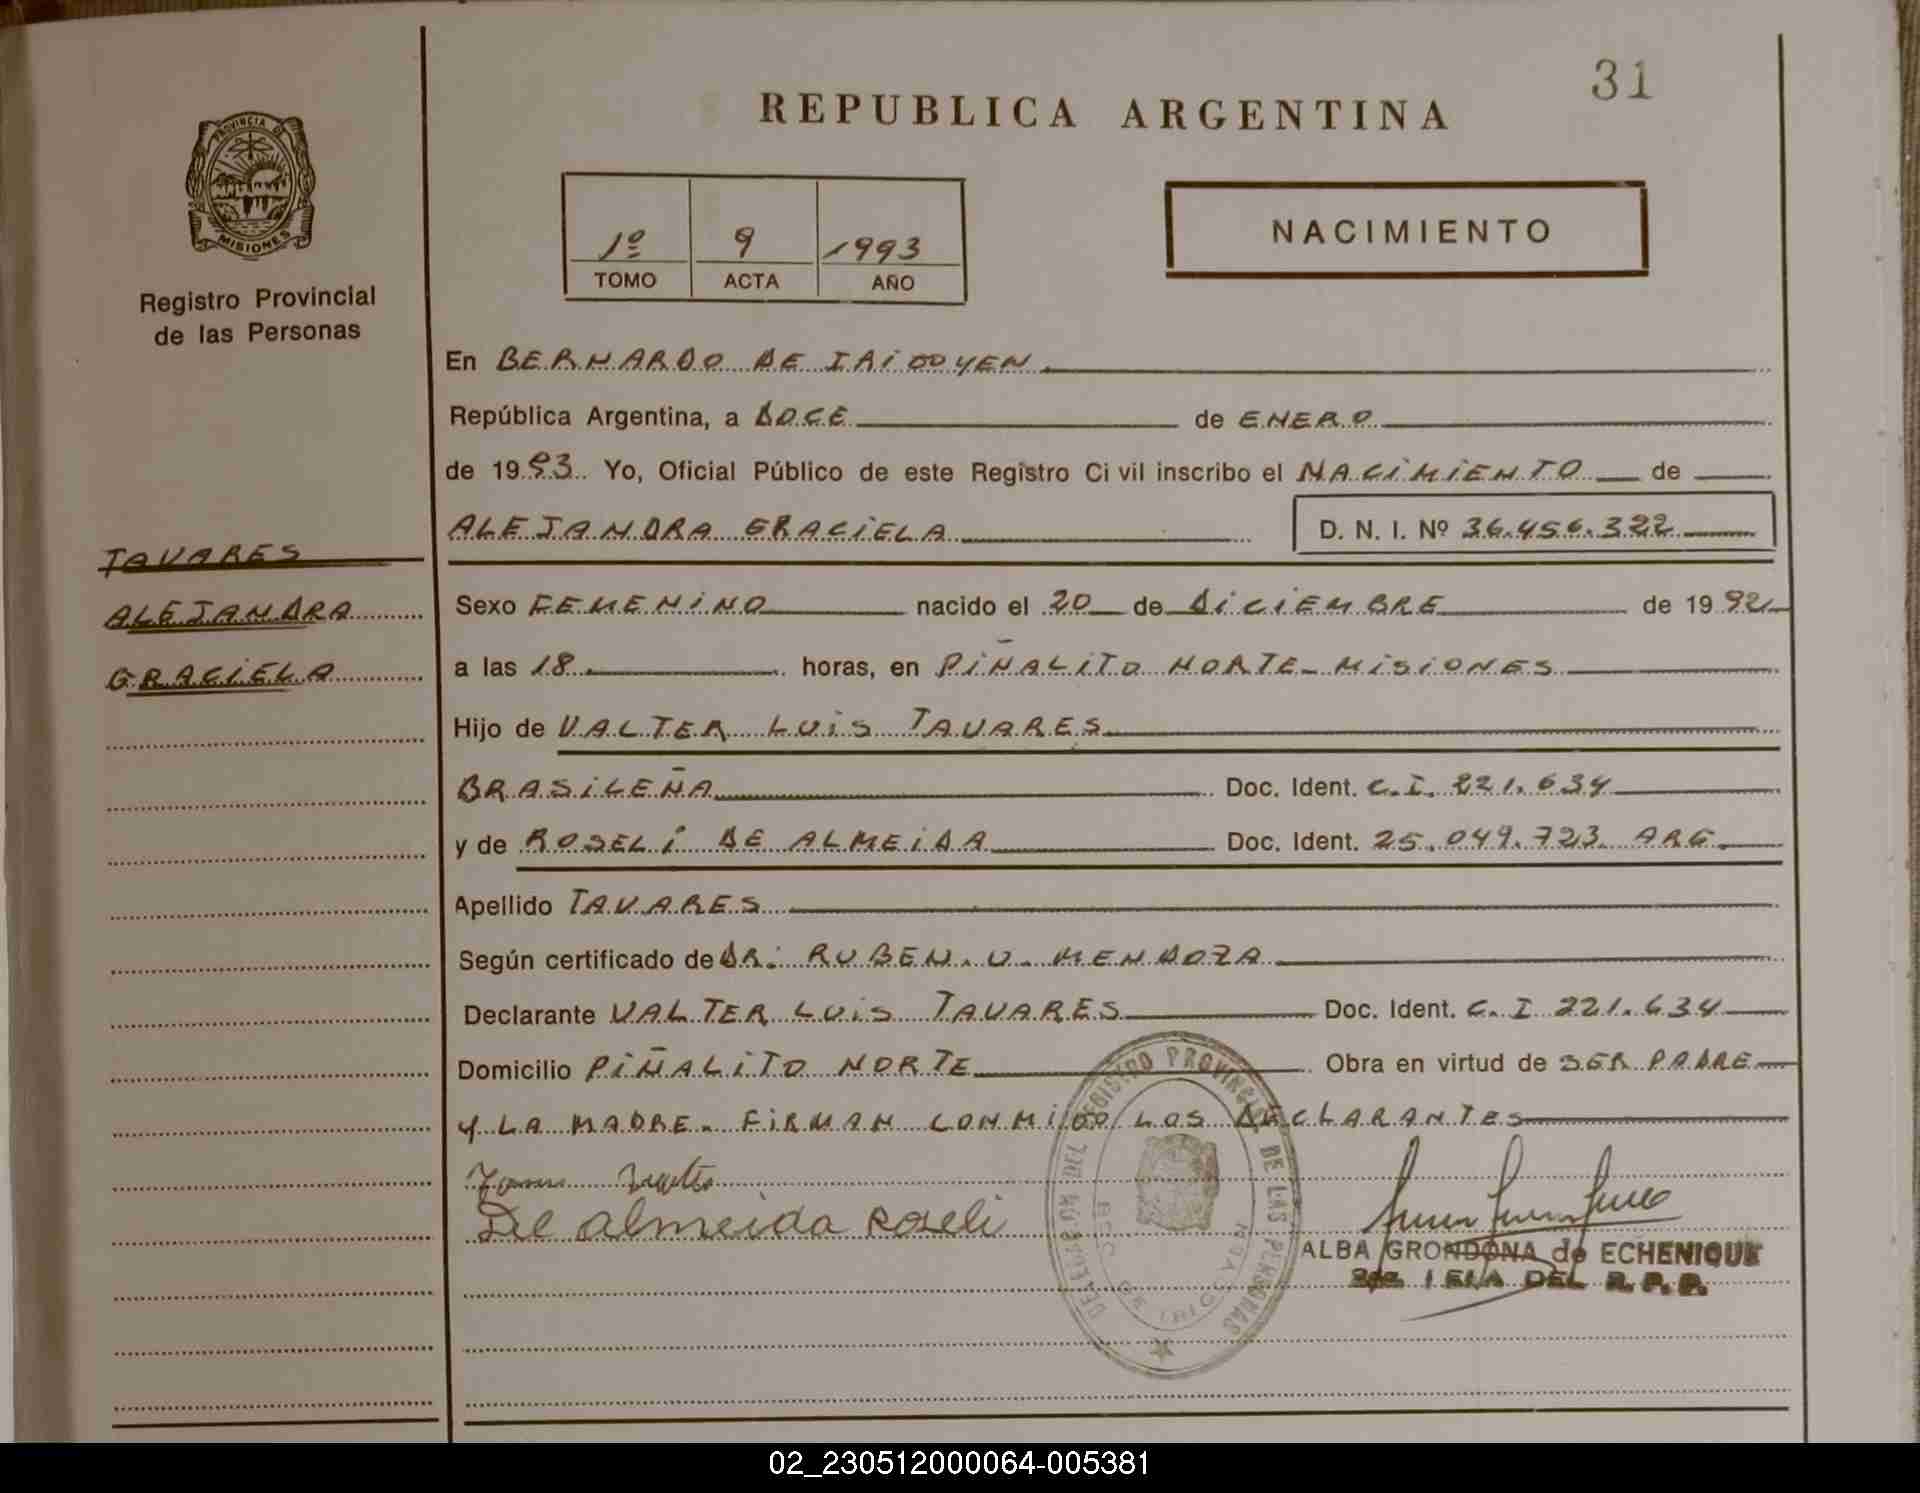 31
REPUBLICA ARGENTINA
PROVINCIA DE
MISIONES
Registro Provincial
de las Personas
1º 9 1993
TOMO ACTA AÑO
NACIMIENTO
En BERNARDO DE IRIGOYEN
República Argentina, a DOCE de ENERO
de 1993. Yo, Oficial Público de este Registro Ci vil inscribo el NACIMIENTO de
ALEJANDRA GRACIELA D. N. I. Nº 36.456.322
TAVARES
ALEJANDRA
GRACIELA
Sexo FEMENINO nacido el 20 de DICIEMBRE de 1992
a las 18 horas, en PIÑALITO NORTE - MISIONES
Hijo de VALTER LUIS TAVARES
BRASILEÑA Doc. Ident. C.I. 221.634
y de ROSELI DE ALMEIDA Doc. Ident. 25.049.723 ARG.
Apellido TAVARES
Según certificado de DR. RUBEN. U. MENDOZA
Declarante VALTER LUIS TAVARES Doc. Ident. C.I 221.634
Domicilio PIÑALITO NORTE Obra en virtud de SER PADRE
Y LA MADRE. FIRMAN CONMIGO LOS DECLARANTES
De almeida Roseli
DELEGACION DEL REGISTRO PROVINCIAL DE LAS PERSONAS
BDO. DE IRIGOYEN
ALBA GRONDONA de ECHENIQUE
DEL R. P. P.
02_230512000064-005381